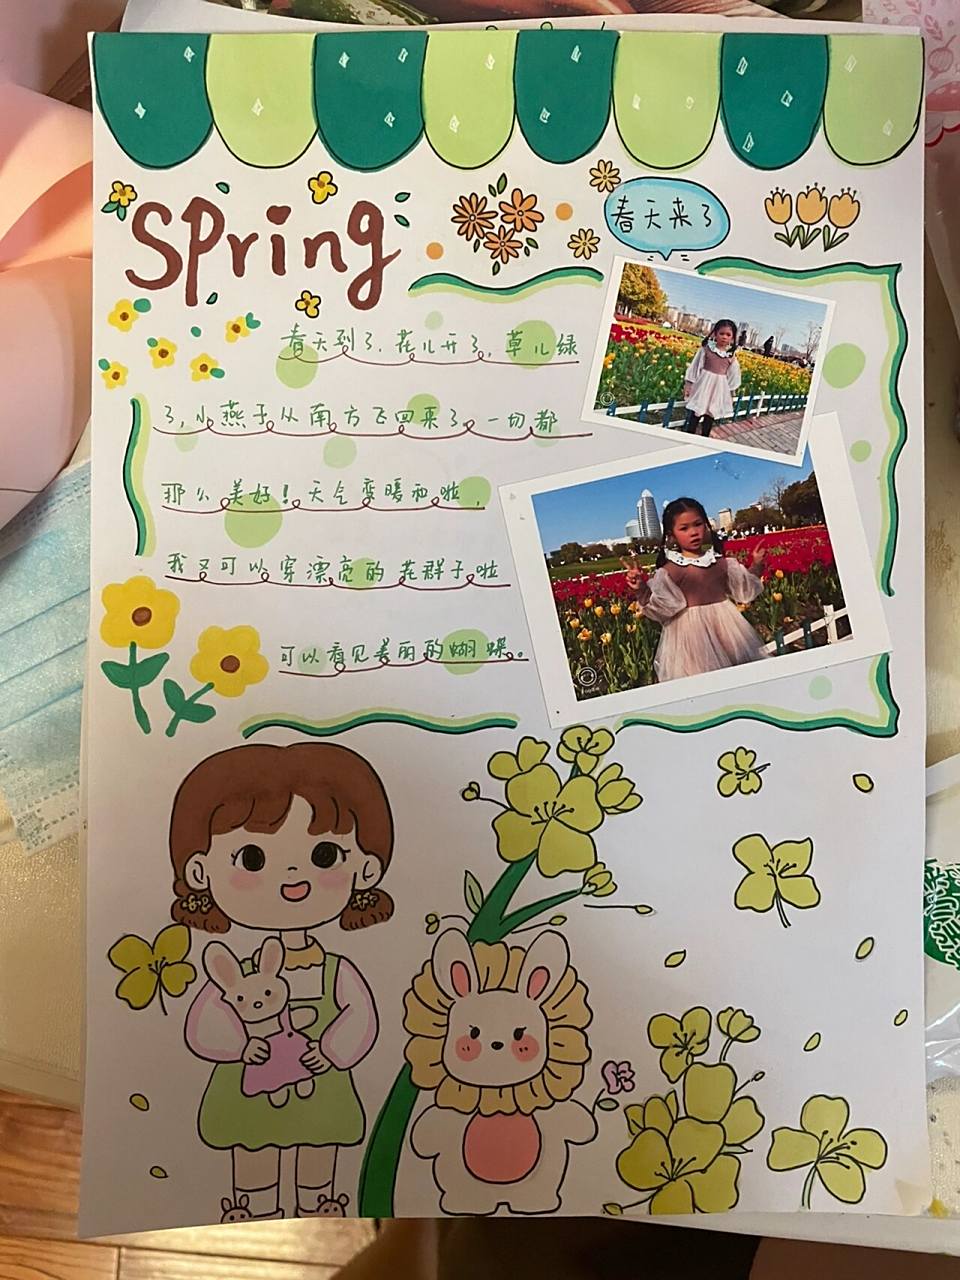 Spring
春天来了
春天到了,花儿开了,草儿绿
了,小燕子从南方飞回来了,一切都
那么美好!天气变暖和啦,
我又可以穿漂亮的花群子啦
可以看见美丽的蝴蝶。